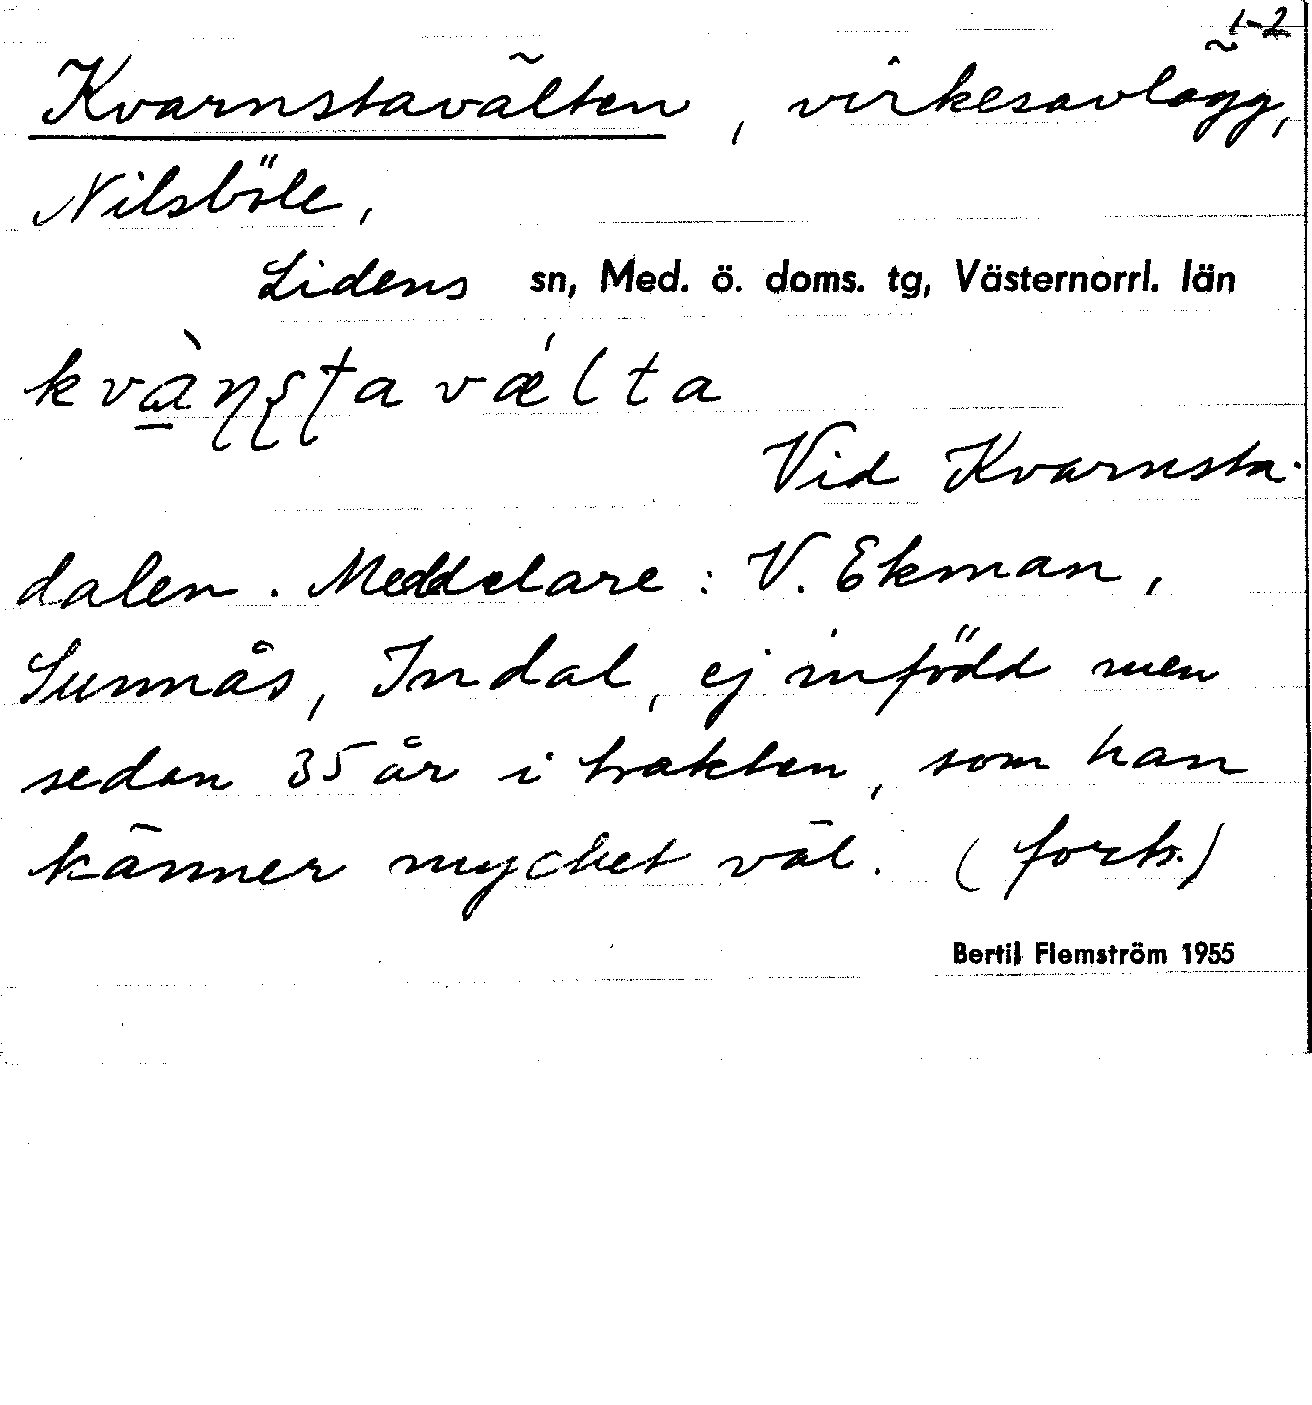 1-2
Kvarnstavälten, virkesavlägg,
Nilsböle,
Lidens sn, Med. ö. doms. tg, Västernorrl. län
kvà̱ɳʂʈa vǽlta
Vid Kvarnsta-
dalen. Meddelare: V. Ekman,
Sunnås, Indal, ej infödd men
sedan 35 år i trakten, som han
känner mycket väl. (forts.)
Bertil Flemström 1955